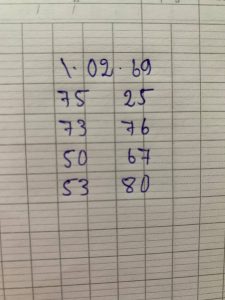 1.02.69
75 25
73 76
50 67
53 80